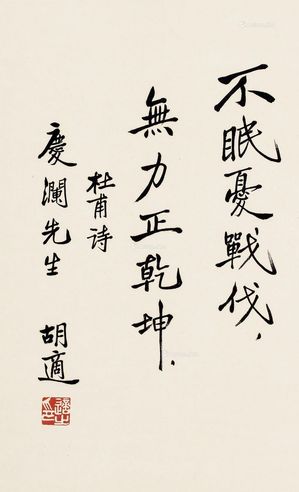 不眠憂戰伐，
無力正乾坤．
杜甫诗
慶瀾先生
胡適